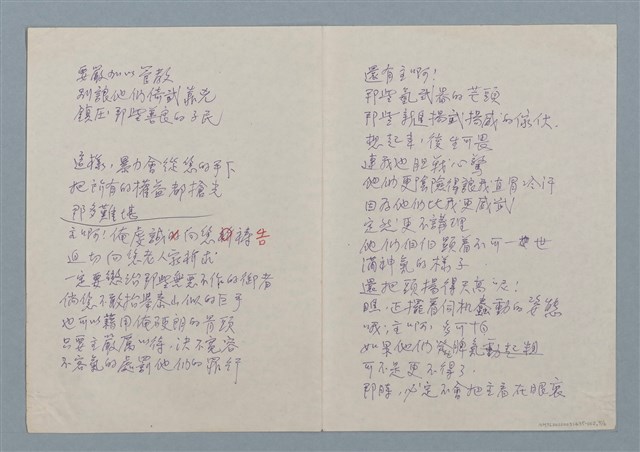 要嚴加以管教
別讓他們倚武義先
鎮压那些善良的子民
這樣，暴力會從您的手下
把所有的權益都搶光
那多難堪
主啊！俺虔誠向您祈禱告
迫切向您老人家祈求
一定要懲治那些無惡不作的御者
倘您不敢抬舉泰山似的巨手
也可以藉用俺硬朗的骨頭
只要主嚴厲以待，決不寬容
不容氣的處罰他們的罪行
還有主啊！
那些氣武器的苗頭
那些親揚武揚威的傢伙
想起來，後生可畏
連我也胆戰心驚
他們更陰險得讓我直冒冷汗
因為他們比我更威武
定然更不講理
他們個個顯着不可一世
滿神氣的樣子
還把頭揚得天高呢！
瞧，正擺着伺机蠢動的姿態
哦，主啊，多可怕
如果他們發脾氣動起粗
可不是更不得了
即時，必定不會把主看在眼裏